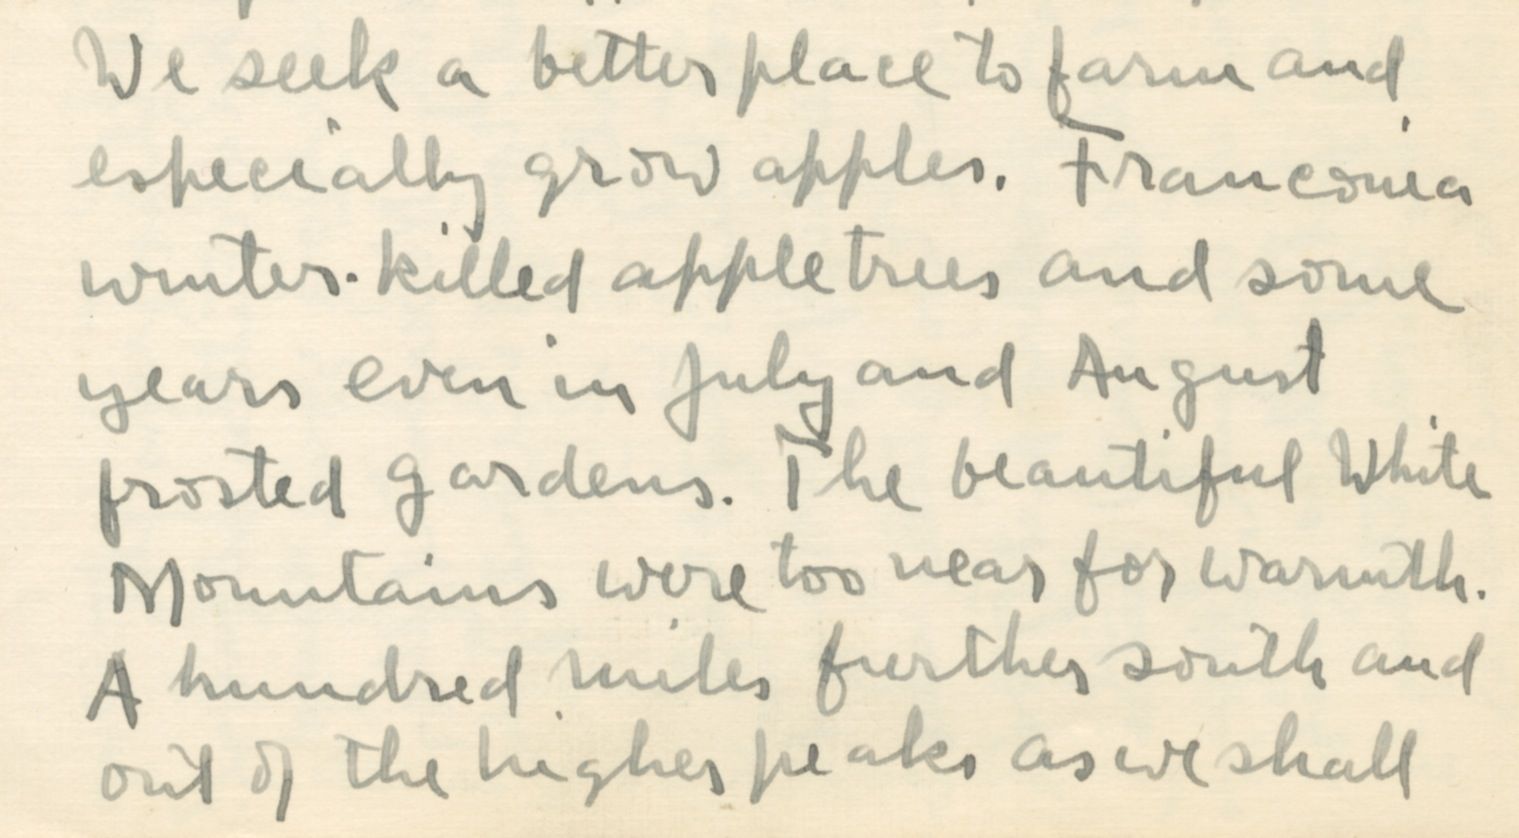 We seek a better place to farm and
especially grow apples. Franconia
winter-killed apple trees and some
years even in July and August
frosted gardens. The beautiful White
Mountains were too near for warmth.
A hundred miles further south and
out of the higher peaks as we shall